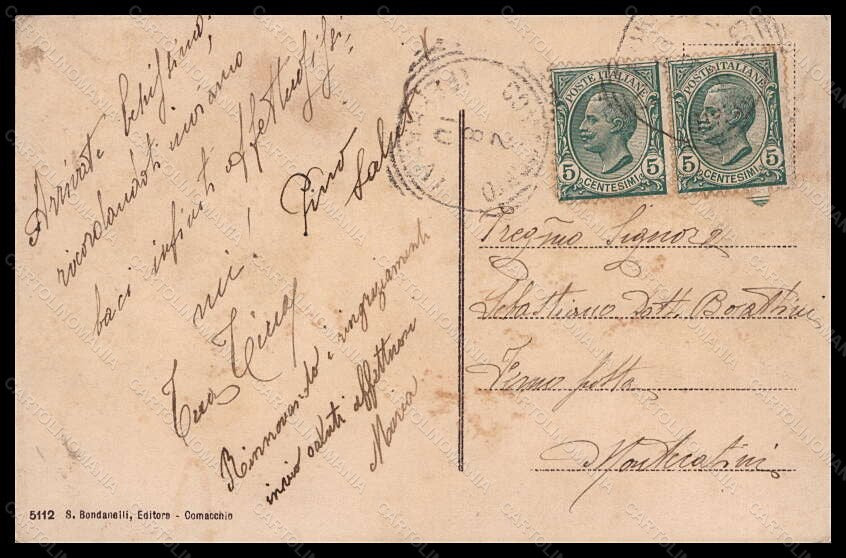 Arrivate benissimo;
ricordandoti inviamo
baci infiniti affettuosissi
mi!
Pino
Saluti
Tua Tina
Rinnovando i ringraziamenti
invio saluti affettuosi
Maria
POSTE ITALIANE
5 5
CENTESIMI
POSTE ITALIANE
5 5
CENTESIMI
Preg/mo Signore
Sebastiano Dott. Boattini
Fermo posta
Montecatini
5112 S. Bondanelli, Editore - Comacchio
CARTOLINOMANIA